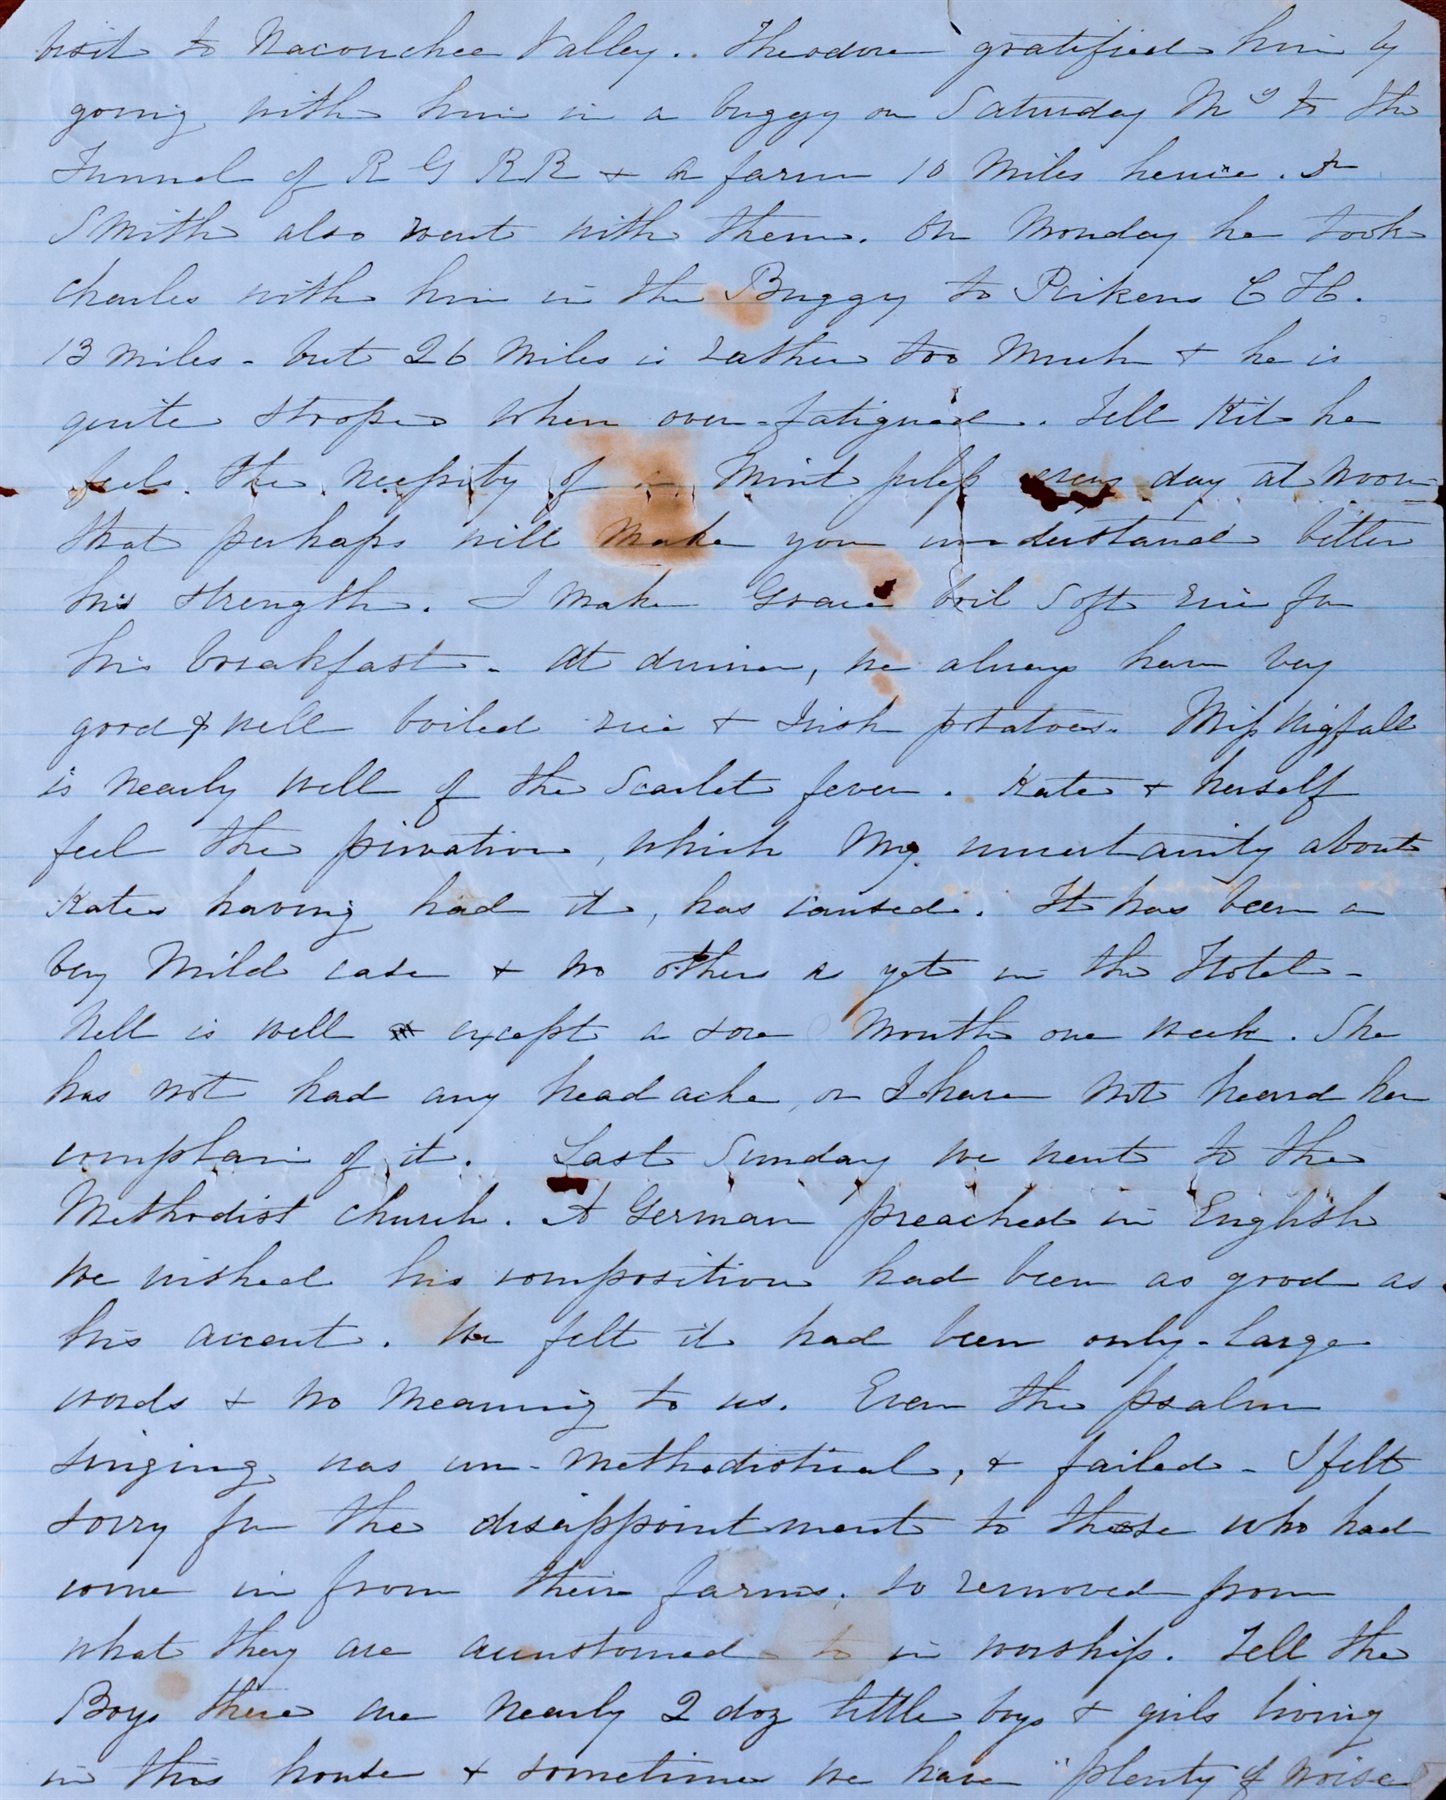 visit to Nacouchee Valley.. Theodore gratified him by
going with him in a buggy on Saturday Mg to the
Tunnel of R G R R + a farm 10 miles hence. Dr
Smith also went with them. On Monday he took
Charles with him in the Buggy to Pickens C H.
13 miles - but 26 miles is rather too much + he is
quite stooped when over-fatigued. Tell Kit he
feels the necessity of a Mint julep every day at noon -
that perhaps will make you understand better
his strength. I make Grace boil soft rice for
his breakfast - At dinner, we always have very
good & well boiled rice + Irish potatoes. Miss Wigfall
is nearly well of the Scarlet fever. Kate + herself
feel the privation, which my uncertainty about
Kates having had it, has caused. It has been a
very mild case + no others as yet in the Hotel -
Nell is well except a sore mouth one week. She
has not had any head ache, or I have not heard her
complain of it. Last Sunday we went to the
Methodist Church. A German preached in English
We wished his composition had been as good as
his accent. We felt it had been only - large
words + no meaning to us. Even the psalm
singing was un-methodistical, + failed - I felt
sorry for the disappointment to those who had
come in from their farms, so removed from
what they are accustomed to in worship. Tell the
Boys there are nearly 2 doz little boys + girls living
in this house + sometimes we have "plenty of noise